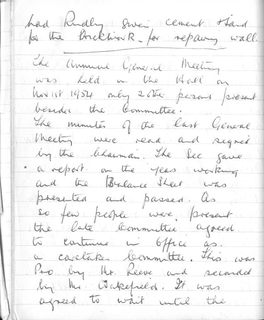 had kindly given cement & sand
for the for repairing wall.
The Annual General Meeting
was held in the Hall on
Nov 1st 1954 only 20 persons present
besides the Committee.
The minutes of the last General
Meeting were read and signed
by the Chairman. The Sec gave
a report on the years working
and the Balance Sheet was
presented and passed. As
so few people were present
the late Committee agreed
to continue in office as
a caretaker Committee. This was
Pro by Mr. Reeve and seconded
by Mr Wakefield. It was
agreed to wait until the